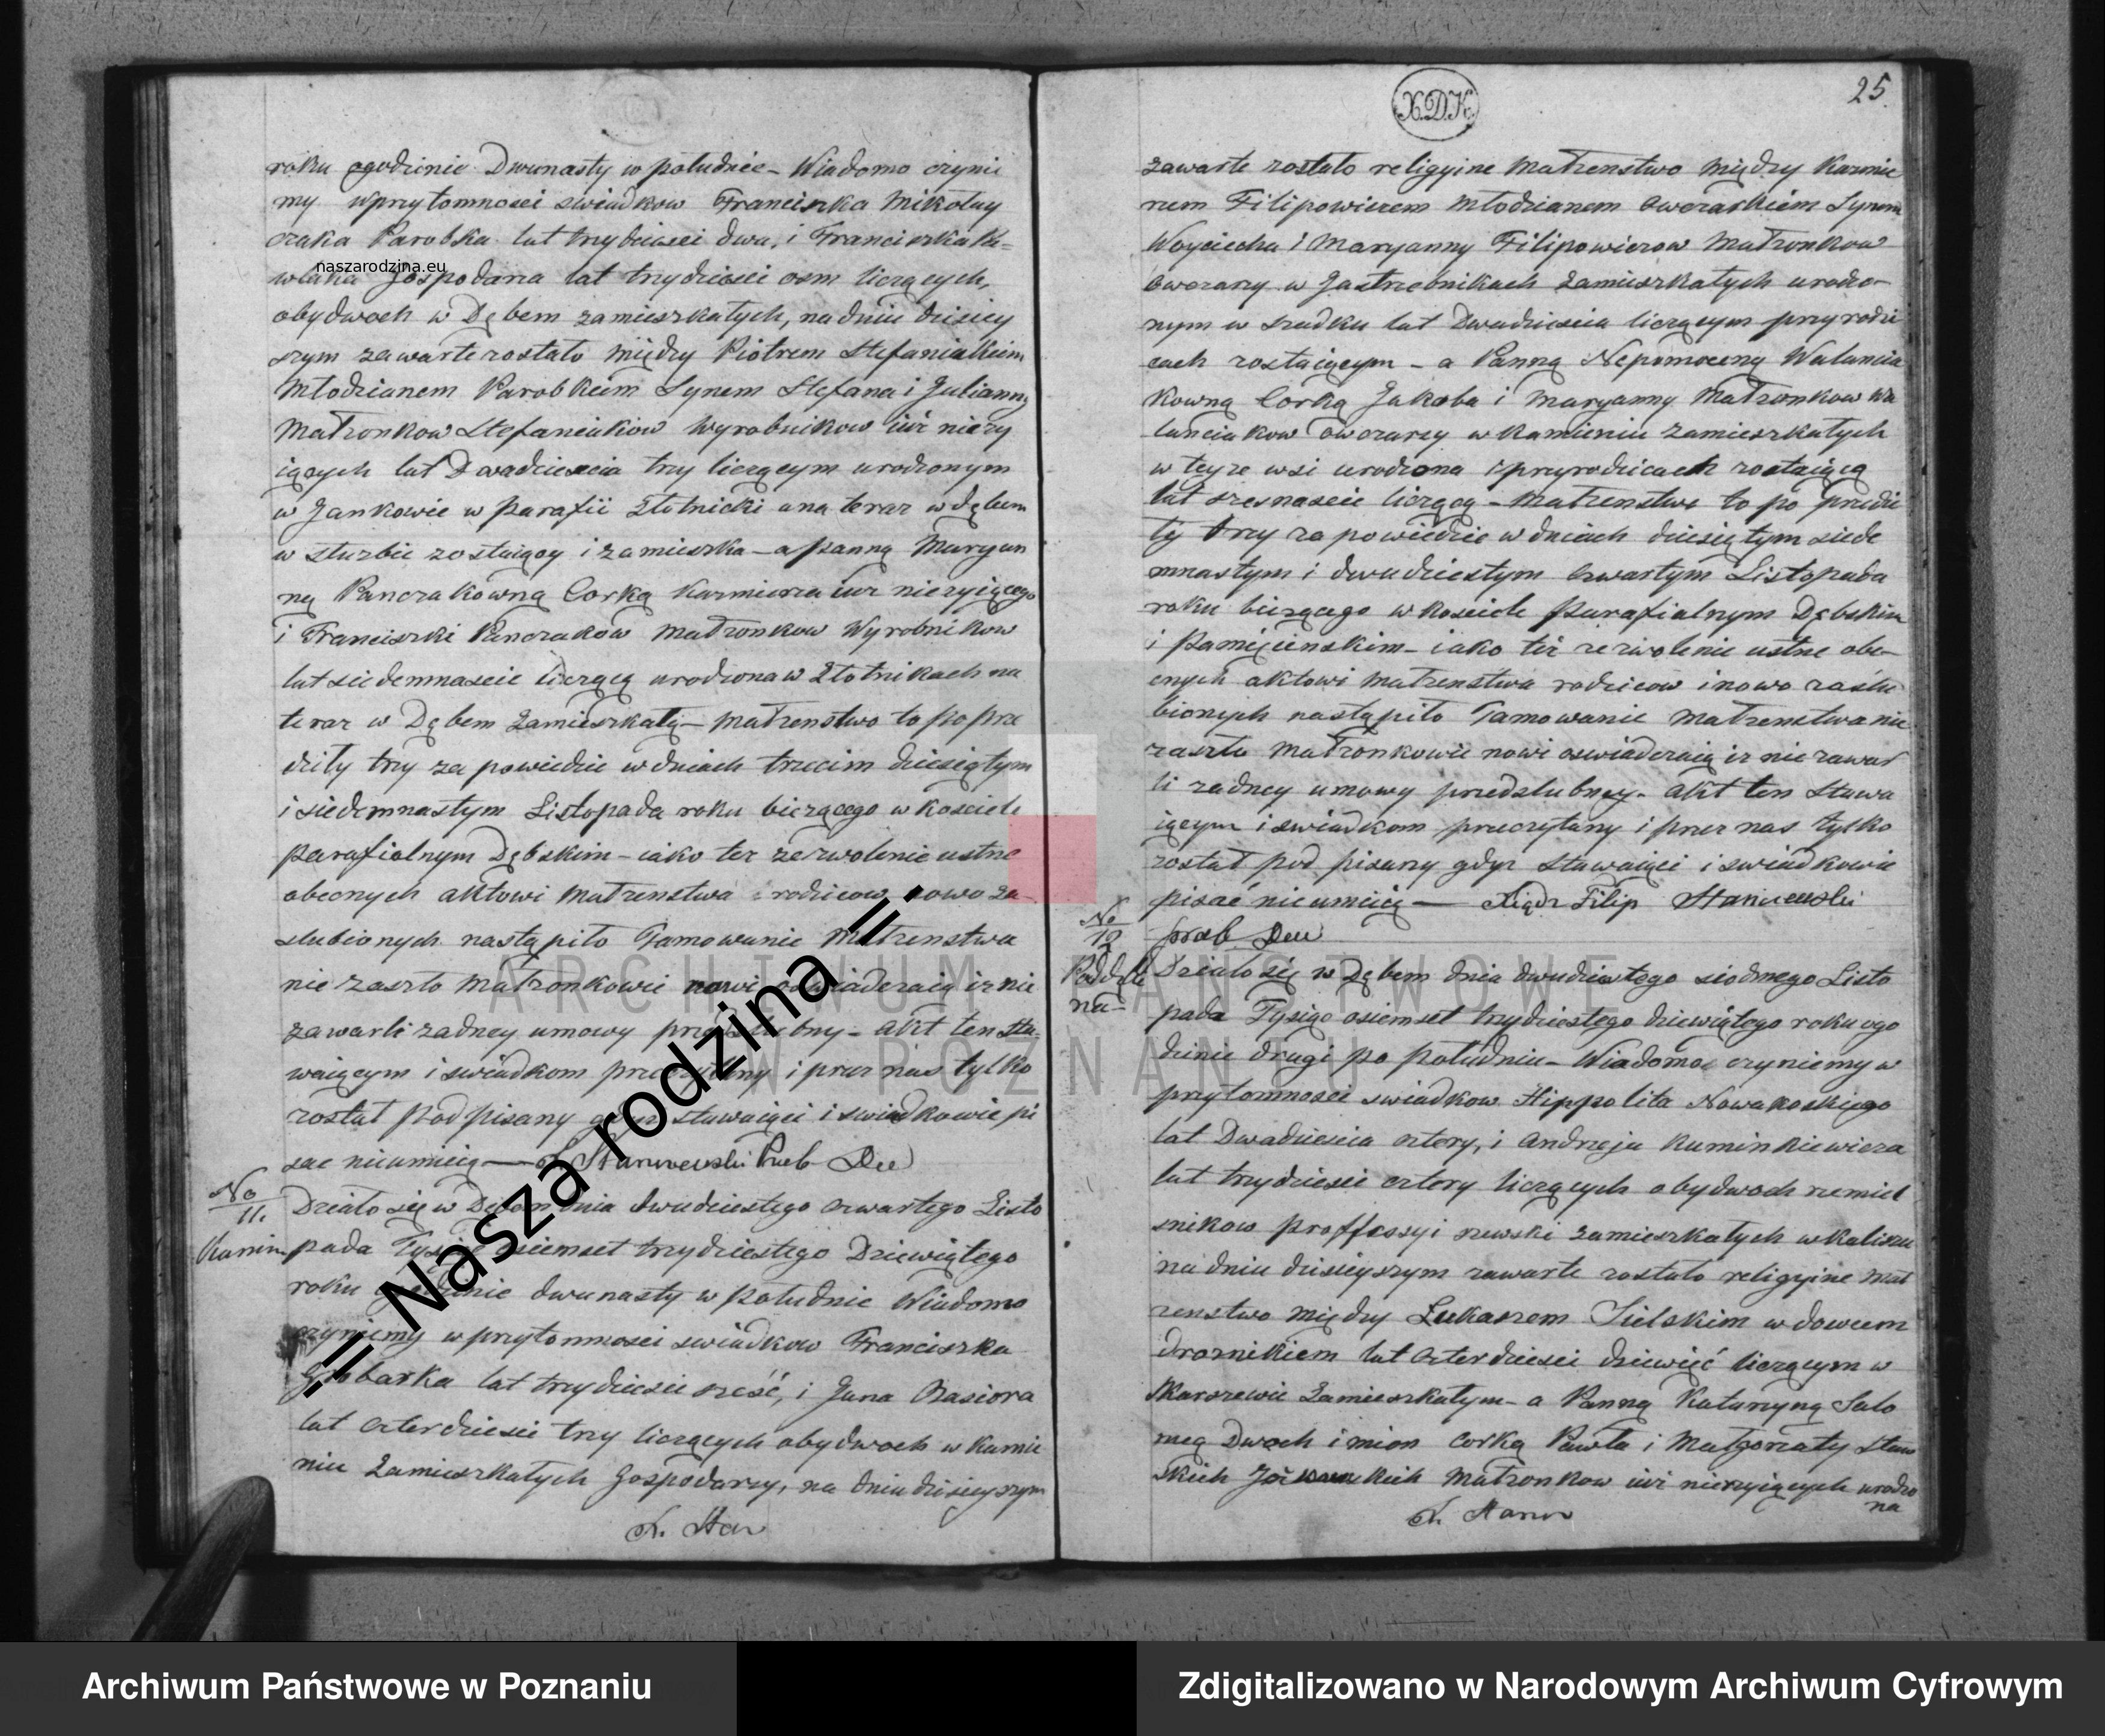 roku ogodzinie Dwunasty w południe – Wiadomo czyni
my wprzytomnosci swiadkow Franciszka Mikołay
czaka Parobka lat trzydziesci dwa, i Franciszka Ka=
wlaka Gospodarza lat trzydziesci osm liczących,
naszarodzina.eu
obydwoch w Dębem zamieszkałych, na dniu dzisiey
szym zawarte zostało między Piotrem Stefaniakiem
Młodzianem Parobkiem Synem Stefana i Julianny
Małżonkow Stefaniakow Wyrobnikow iuż nieży
iących lat Dwadziescia trzy liczącym urodzonym
w Jankowie w Parafii Złotnicki a na teraz w dębem
w służbie zostaiący i zamieszka – a panną Maryan
ną Panczakowną Corką Kazmierza iuz nieżyiącego
i Franciszki Panczakow Małżonkow Wyrobnikow
lat siedemnascie liczącą urodzona w Złotnikach na
teraz w Dębem zamieszkałą – Małżenstwo to po prze
dziły trzy zapowiedzie w dniach trzecim dziesiątym
i siedemnastym Listopada roku bieżącego w kosciele
parafialnym Dębskim – iako też zezwolenie ustne
obecnych aktowi Małżenstwa rodzicow nowo za
slubionych nastąpiło Tamowanie Małżenstwa
nie zaszło Małżonkowie nowi oswiadczaią iz nie
zawarli żadney umowy przedslubny – Akt ten sta=
waiącym i swiadkom przeczytany i przez nas tylko
został podpisany gdyz stawaiąci i swiadkowie pi
sac nieumieią — X Staniszewski Prob. Dee
No
11.
Kamin
Działo się w Dębem dnia dwudziestego czwartego Listo
pada Tysiąc osiemset trzydziestego Dziewiątego
roku ogodzinie dwunasty w południe Wiadomo
czyniemy w przytomnosci swiadkow Franciszka
Grobarka lat trzydziesci szesć, i Jana Basiora
lat czterdziesci trzy liczących obydwoch w Kamie
niu zamieszkałych Gospodarzy, na dniu dzisieyszym
X. Stan
X.D.K.
25.
zawarte zostało religyine Małżenstwo między Kazmie
rzem Filipowiczem Młodzianem Owczarkiem Synem
Woyciecha i Maryanny Filipowiczow Małżonkow
Owczarzy w Jastrzebnikach zamieszkałych urodzo-
nym w szadku lat Dwadziescia liczącym przy rodzi
cach zostaiącym – a Panną Nepomoceną Walencia
kowną Corką Jakoba i Maryanny Małżonkow Wa
lenciakow owczarzy w Kamieniu zamieszkałych
w teyze wsi urodzona i przyrodzicach zostaiącą
lat szesnascie liczącą – Małżenstwo to po przedzi
ły trzy zapowiedzie w dniach dziesiątym siede
mnastym i dwudziestym czwartym Listopada
roku bieżącego w Kosciele Parafialnym Dębskim
i Pamięcinskim – iako też zezwolenie ustne obe-
cnych aktowi Małżenstwa rodzicow i nowo zaslu
bionych nastąpiło Tamowanie Małżenstwa nie
zaszło Małżonkowie nowi oswiadczaią iz nie zawar
li żadney umowy przedslubney – Akt ten stawa
iącym i swiadkom przeczytany i przez nas tylko
został podpisany gdyz stawaiąci i swiadkowie
pisać nieumieią — Xiądz Filip Staniszewski
prob. Dee
No
12
Działo się w Dębem dnia dwudziestego siodmego Listo
pada Tysiąc osiemset trzydziestego dziewiątego roku ogo
dzinie drugi po południu – Wiadomo czyniemy w
przytomnosci swiadkow Hippolita Nowakoskiego
lat Dwadziescia cztery, i Andrzeja Kaminkiewicza
lat trzydziesci cztery liczących obydwoch rzemiel
snikow proffessyi szewski zamieszkałych w Kaliszu
na dniu dzisieyszym zawarte zostało religyine Mał
żenstwo między Łukaszem Sielskim wdowcem
drożnikiem lat czterdziesci dziewięć liczącym w
Skarszewie zamieszkałym – a Panną Katarzyną Salo
meą Dwoch imion corką Pawła i Małgorzaty
Małżonkow iuż nieżyiących urodzo
na
X. Stanis
ARCHIWUM PAŃSTWOWE
W POZNANIU
!!! Nasza rodzina !!!
Archiwum Państwowe w Poznaniu
Zdigitalizowano w Narodowym Archiwum Cyfrowym